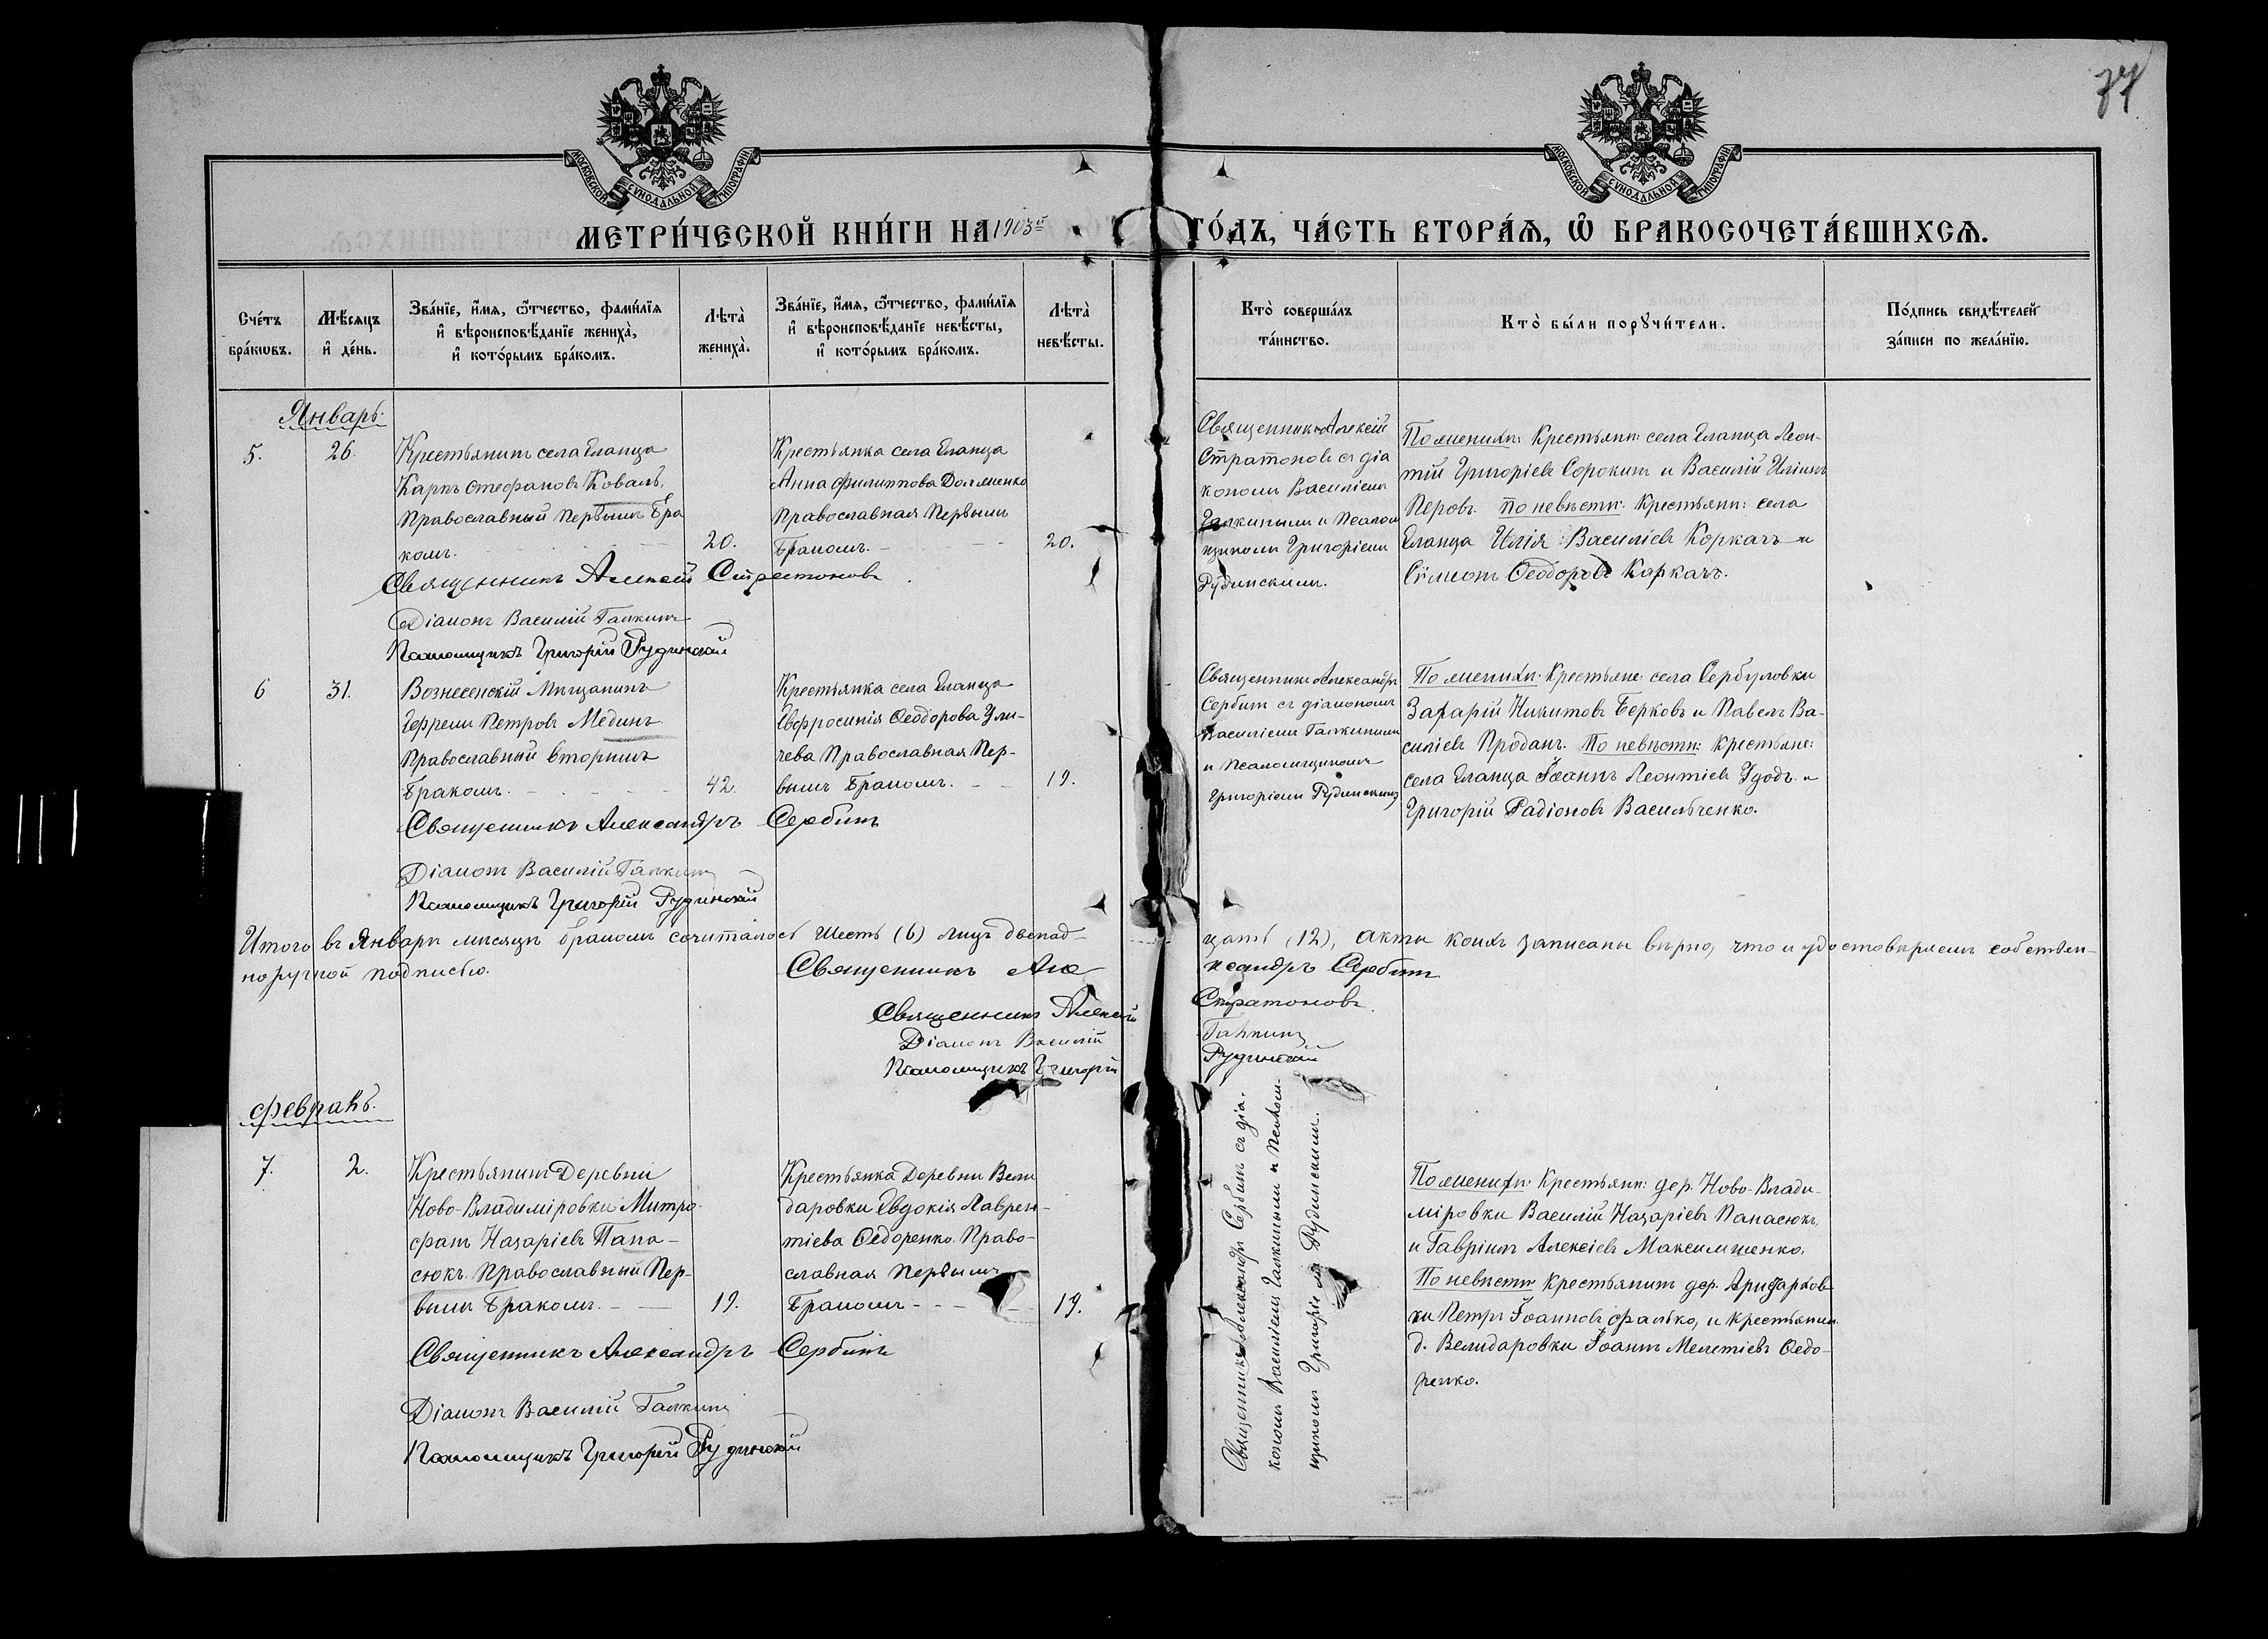 77
МОСКОВСКОЙ СѴНОДАЛЬНОЙ ТИПОГРАФІИ
МОСКОВСКОЙ СѴНОДАЛЬНОЙ ТИПОГРАФІИ
МЕТРИ́ЧЕСКОЙ КНИ́ГИ НА 1903й ГО́ДЪ, ЧА́СТЬ ВТОРА́Ѧ, Ѡ БРАКОСОЧЕТА́ВШИХСѦ.
Сче́тъ
бра́кѡвъ.
Мѣ́сѧцъ
и҆ де́нь.
Зва́нїе, и҆́мѧ, ѻ҆́тчество, фами́лїѧ
и҆ вѣроисповѣ́данїе жениха̀,
и҆ кото́рымъ бра́комъ.
Лѣта̀
жениха̀.
Зва́нїе, и҆́мѧ, ѻ҆́тчество, фами́лїѧ
и҆ вѣроисповѣ́данїе невѣ́сты,
и҆ кото́рымъ бра́комъ.
Лѣта̀
невѣ́сты.
Кто̀ соверша́лъ
та́инство.
Кто̀ бы́ли порꙋчи́тели.
По́дпись свидѣ́телей
за́писи по жела́нїю.
Январь.
5.
26.
Крестьянинъ села Еланца
Карпъ Стефановъ Коваль,
Православный Первымъ Бра
комъ.
20.
Крестьянка села Еланца
Анна Филиппова Долменко
Православная Первымъ
Бракомъ.
20.
Священникъ Алексій
Стратоновъ съ діа
кономъ Василіемъ
Галкинымъ и Псалом
щикомъ Григоріемъ
Рудинскимъ.
По женихѣ: Крестьян: села Еланца Леон-
тій Григоріевъ Сорокинъ и Василій Иліинъ
Перовъ. По невѣстѣ: Крестьян: села
Еланца Илія Василіевъ Коркачъ и
Сѵмеонъ Ѳеодоровъ Каркачъ.
Священникъ Алексій Стратоновъ
Діаконъ Василій Галкинъ
Псаломщикъ Григорій Рудинскій
6
31.
Вознесенскій Мѣщанинъ
Ефремъ Петровъ Мединъ
Православный вторымъ
Бракомъ.
42.
Крестьянка села Еланца
Евфросинія Ѳеодорова Ули-
чева Православная Пер-
вымъ Бракомъ.
19.
Священникъ Александръ
Сербинъ съ діакономъ
Василіемъ Галкинымъ
и Псаломщикомъ
Григоріемъ Рудинскимъ
По женихѣ: Крестьяне: села Сербуловки
Захарій Никитовъ Берковъ и Павелъ Ва-
силіевъ Проданъ. По невѣстѣ: Крестьяне:
села Еланца Іоаннъ Леонтіевъ Удодъ и
Григорій Радіоновъ Васильченко.
Священникъ Александръ Сербинъ
Діаконъ Василій Галкинъ
Псаломщикъ Григорій Рудинскій
Итого въ Январѣ мѣсяцѣ бракомъ сочиталось шесть (6) лицъ двѣнад-цать (12), акты коихъ записаны вѣрно, что и удостовѣряемъ собствен-
норучной подписью.
Священникъ Александръ Сербинъ
Священникъ Алексій Стратоновъ
Діаконъ Василій Галкинъ
Псаломщикъ Григорій Рудинскій
Февраль.
7.
2.
Крестьянинъ Деревни
Ново-Владиміровки Митро-
фанъ Назаріевъ Пана-
сюкъ. Православный Пер-
вымъ Бракомъ.
19.
Крестьянка Деревни Вели
даровки Евдокія Лаврен-
тіева Ѳедоренко. Право-
славная Первымъ
Бракомъ
19.
Священникъ Александръ Сербинъ съ діа-
кономъ Василіемъ Галкинымъ и Псалом-
щикомъ Григоріемъ Рудинскимъ.
По женихѣ: Крестьян: дер. Ново-Влади-
міровки Василій Назаріевъ Панасюкъ,
и Гавріилъ Алексіевъ Максимшенко,
По невѣстѣ крестьянинъ дер. Аридархов-
ки Петръ Іоанновъ Фалько, и крестьянин
д. Велидаровки Іоаннъ Мелетіевъ Ѳедо-
ренко.
Священникъ Александръ Сербинъ
Діаконъ Василій Галкинъ
Псаломщикъ Григорій Рудинскій